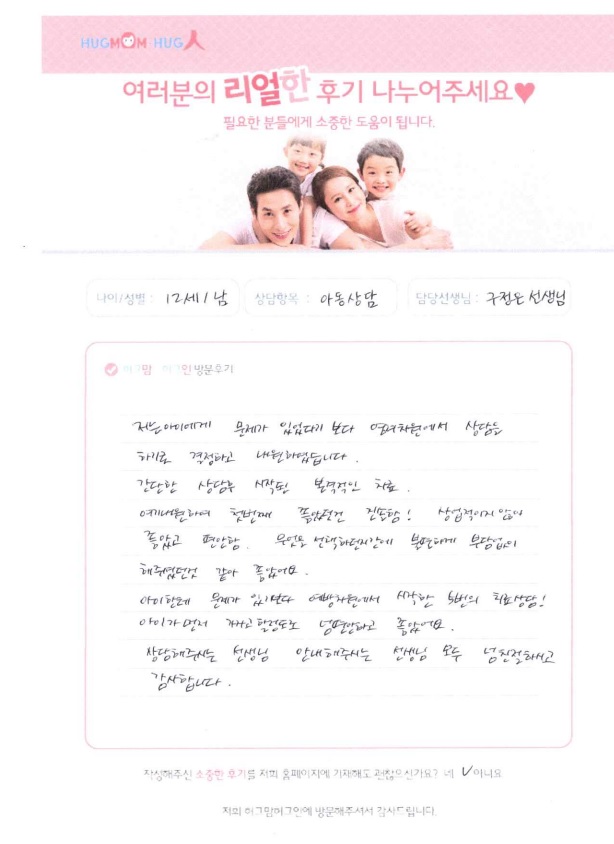 HUGMOM HUG人
여러분의 리얼한 후기 나누어주세요♥
필요한 분들에게 소중한 도움이 됩니다.
나이/성별 : 12세 / 남 상담항목 : 아동상담 담당선생님 : 구정은 선생님
허그맘 허그인 방문후기
저는 아이에게 문제가 있었다기 보다 예방차원에서 상담을
하기로 결정하고 내원하였습니다.
간단한 상담후 시작된 본격적인 치료.
여기내원하여 첫번째 좋았던건 진료함! 상업적이지 않아
좋았고 편안함. 무엇을 선택하던지간에 불편하게 부담없이
해주셨던것 같아 좋았어요.
아이한테 문제가 있기보다 예방차원에서 시작한 5번의 치료상담!
아이가 먼저 가자고 할정도로 넘편안하고 좋았어요.
상담해주시는 선생님 안내해주시는 선생님 모두 넘친절하시고
감사합니다.
작성해주신 소중한 후기를 저희 홈페이지에 기재해도 괜찮으신가요? 네 ✓아니요
저희 허그맘허그인에 방문해주셔서 감사드립니다.